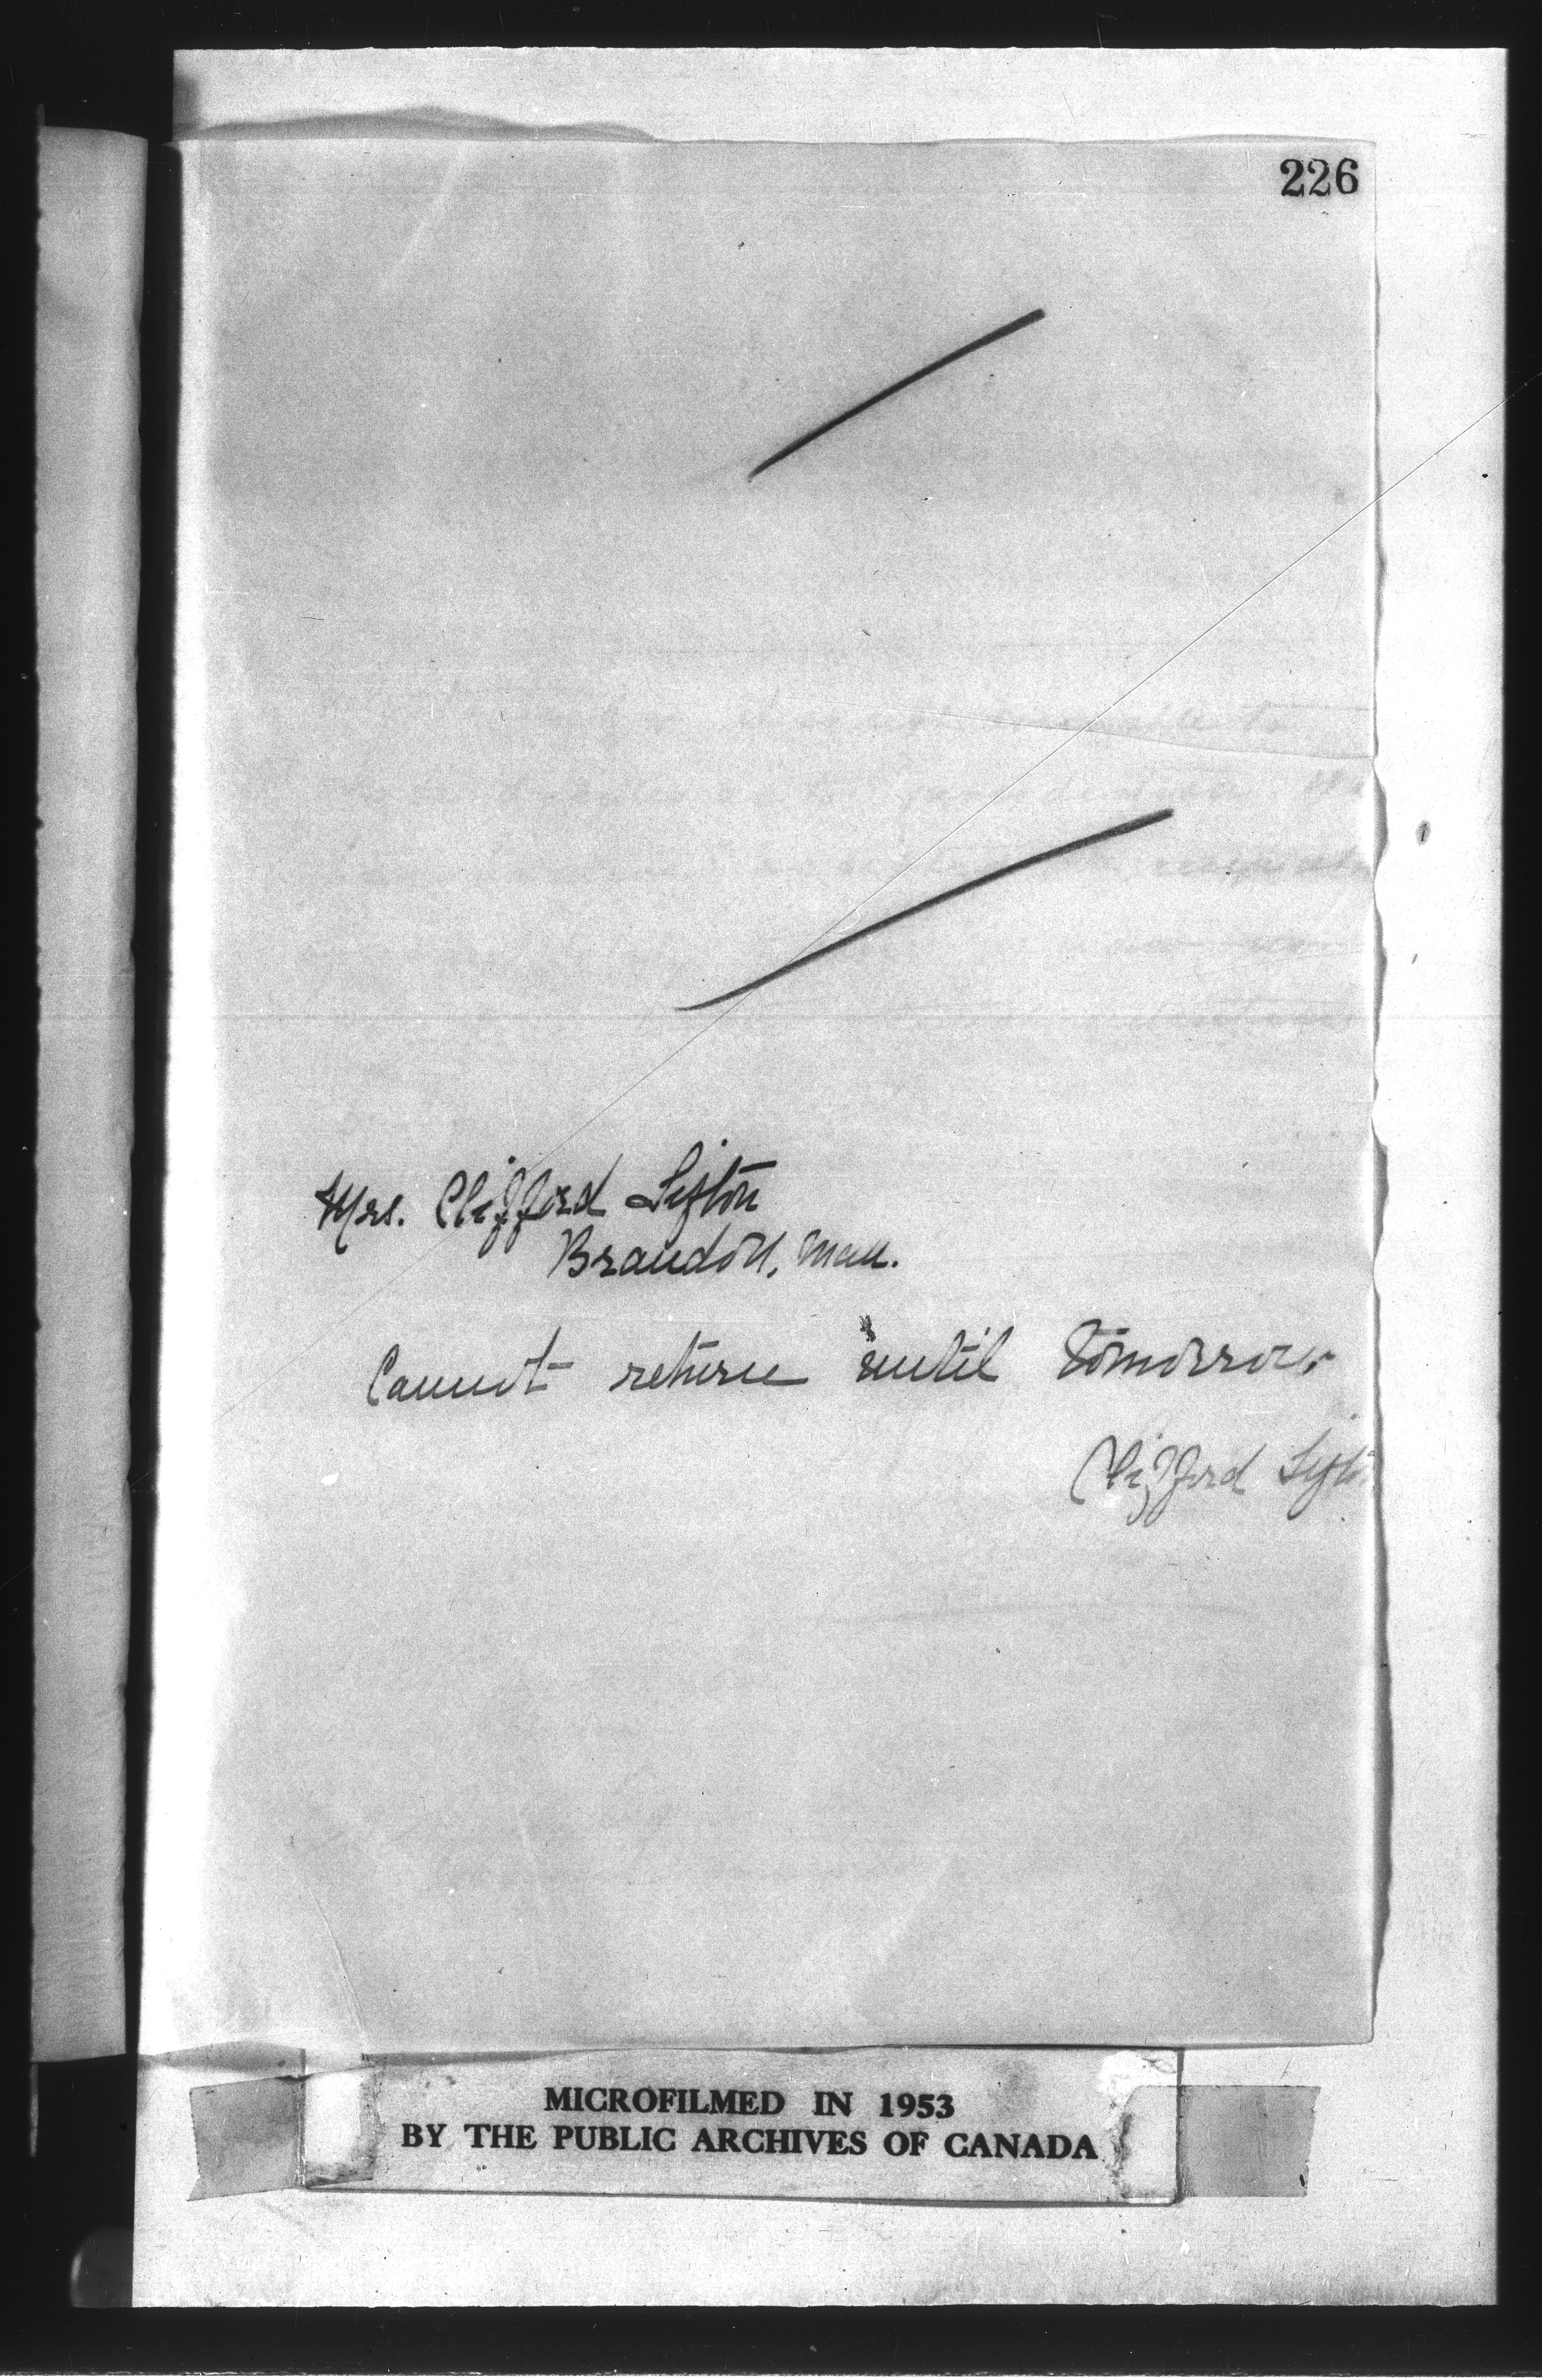 226
Mrs. Clifford Sifton
Brandon, Man.
Cannot return until tomorrow
Clifford Sifton
MICROFILMED IN 1953
BY THE PUBLIC ARCHIVES OF CANADA